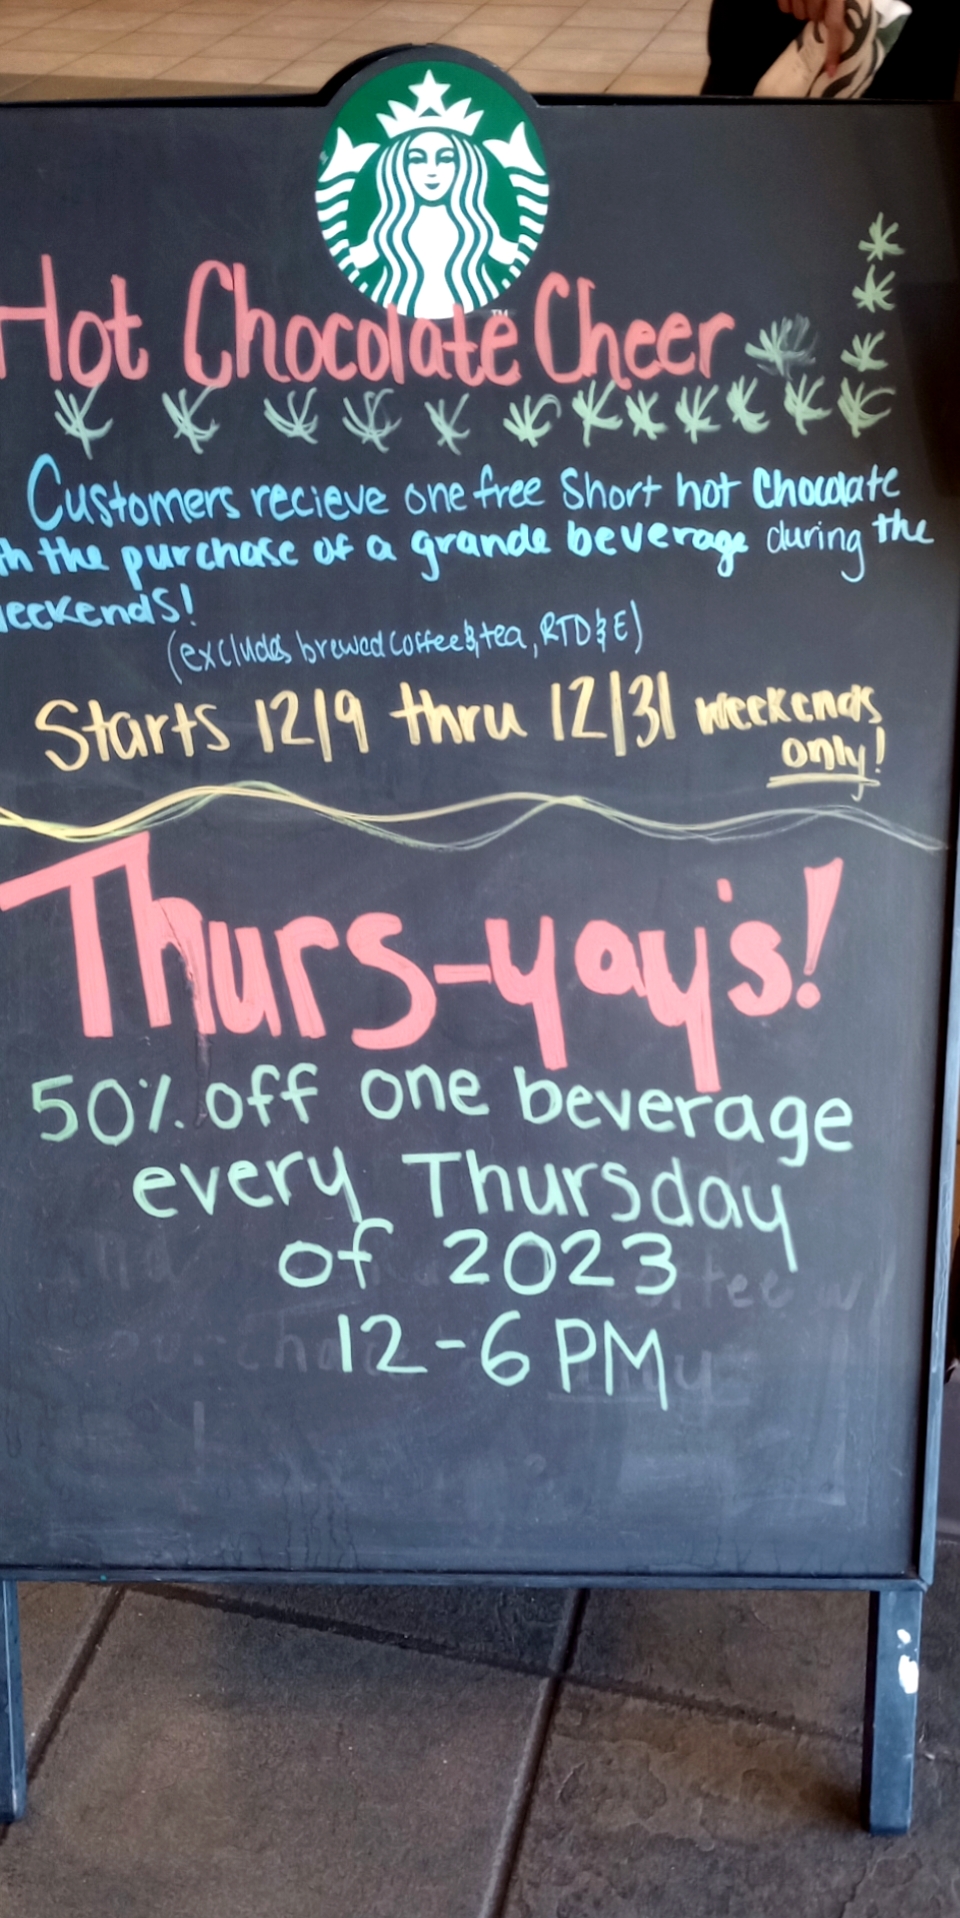 Hot Chocolate Cheer
Customers recieve one free Short hot Chocolate
th the purchase of a grande beverage during the
eekends!
(excludes brewed coffee & tea, RTD & E)
Starts 12/9 thru 12/31 weekends
only!
Thurs-yay's!
50% off one beverage
every Thursday
of 2023
12-6 PM
TM